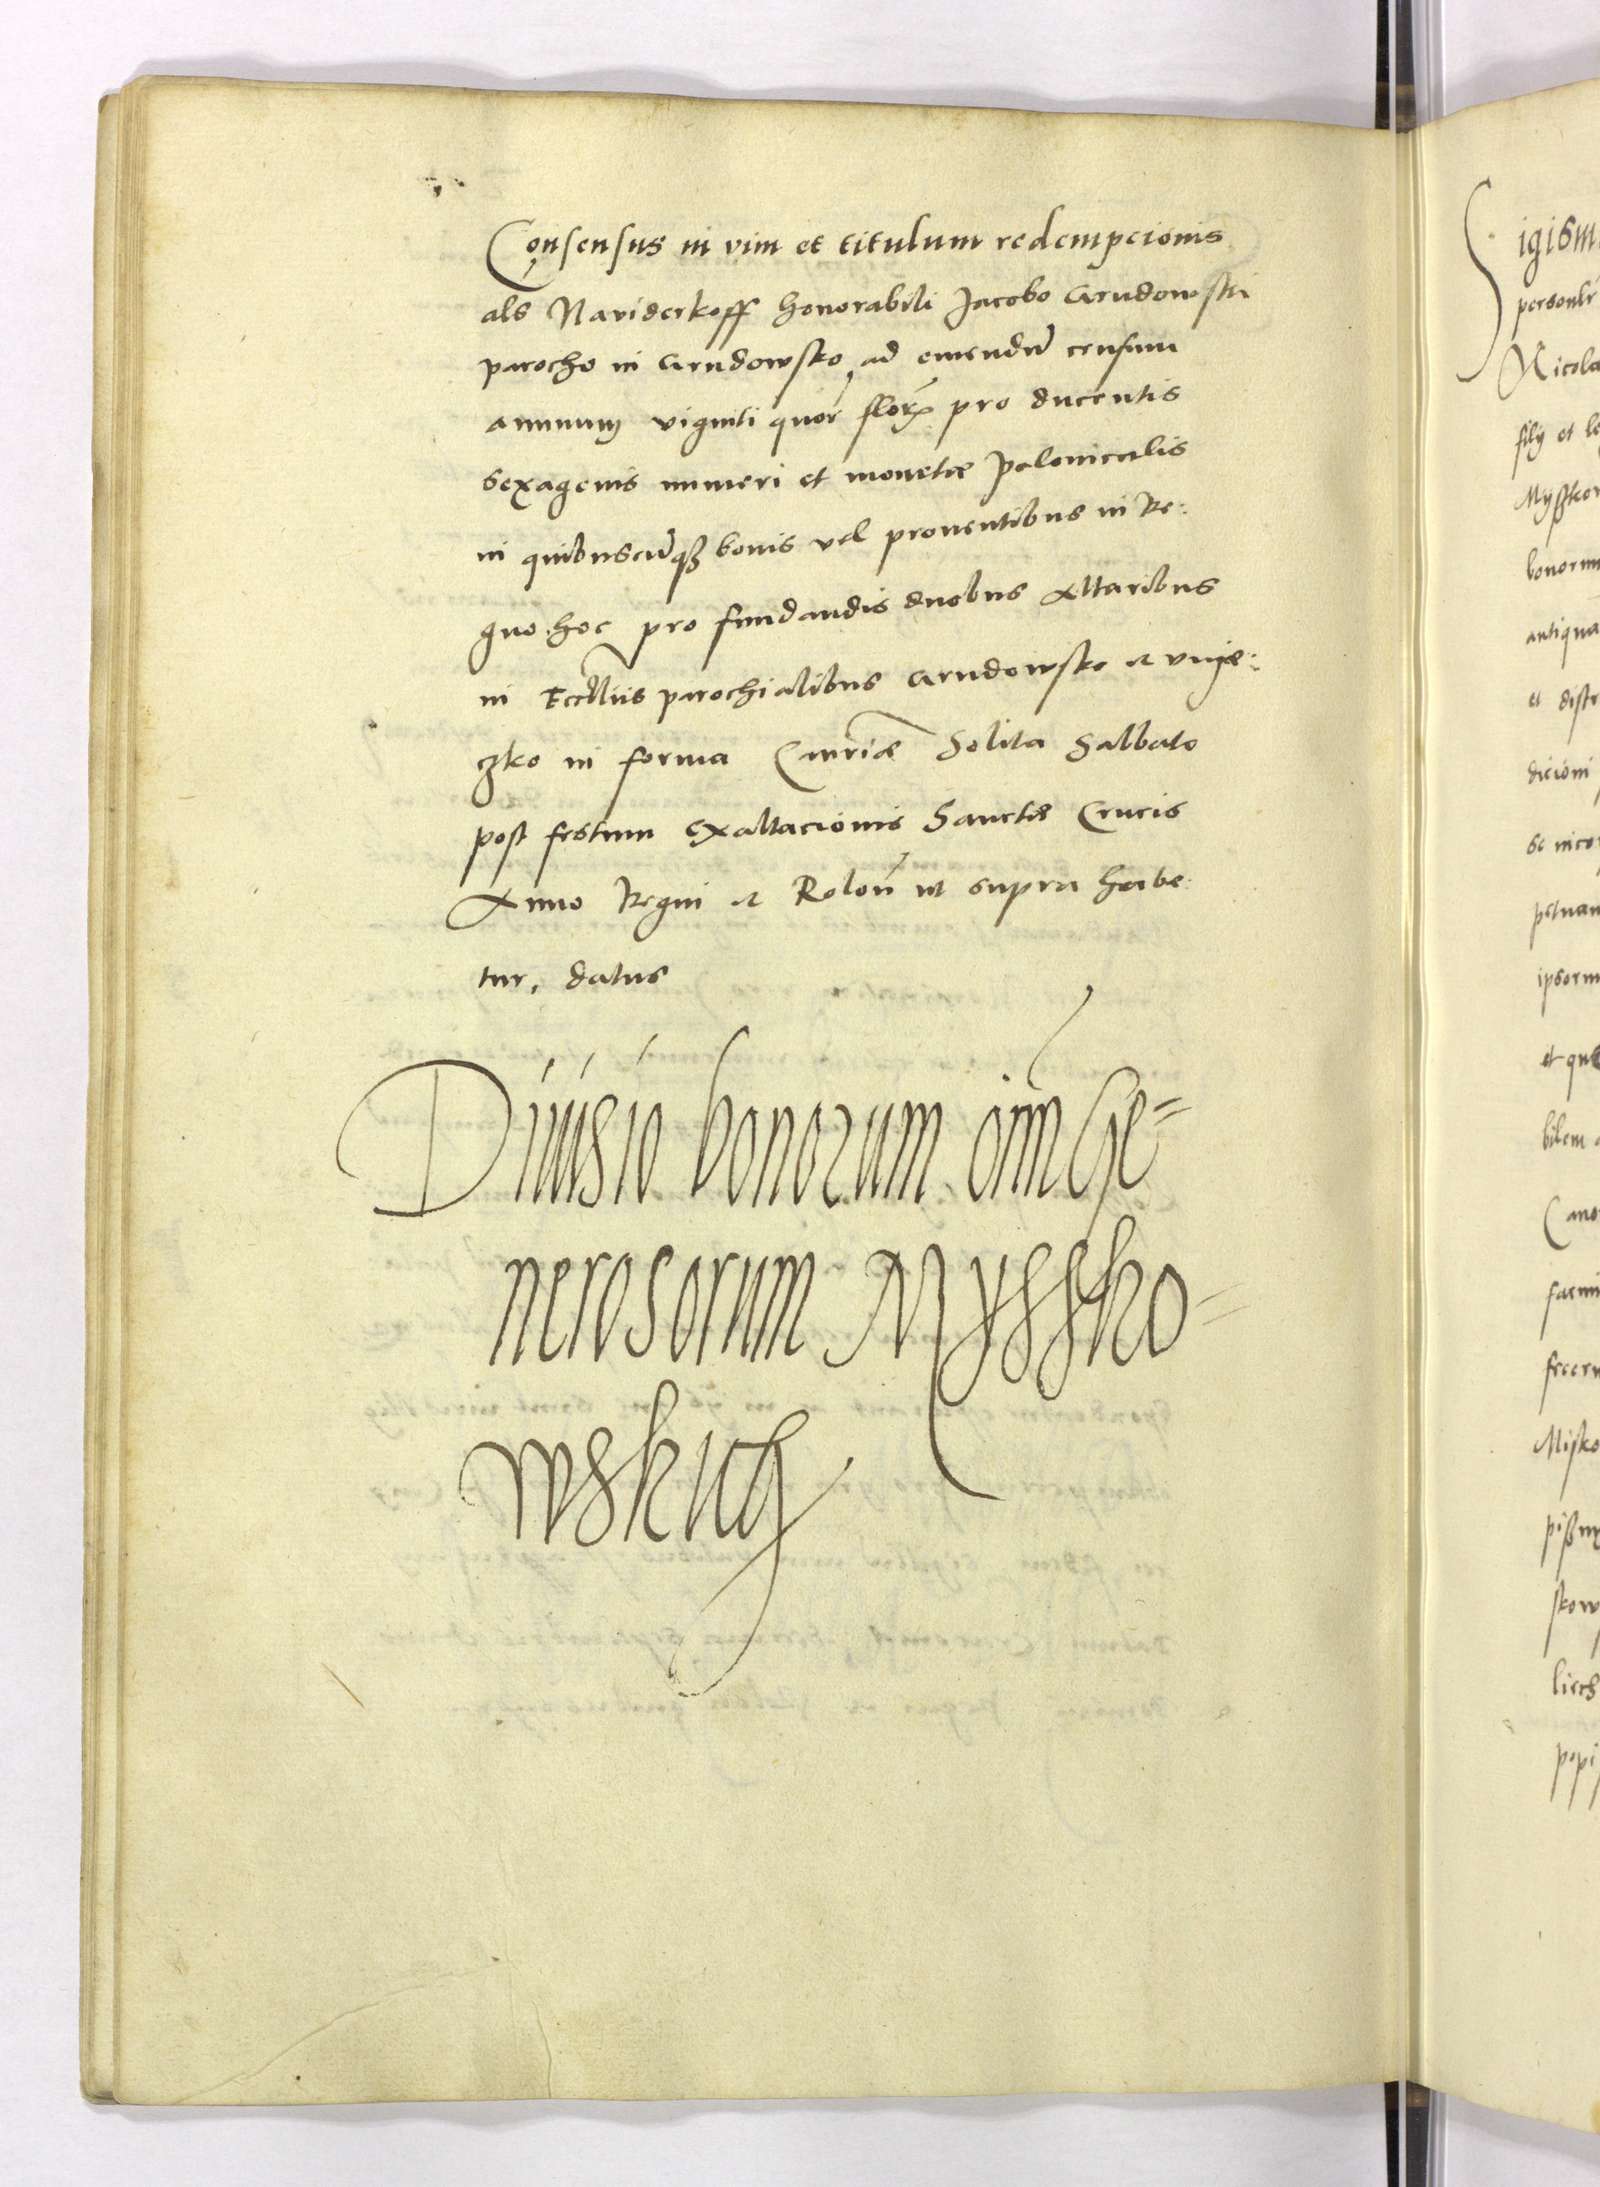 Consensus in vim et titulum redempcionis
als Naviderkoff honorabili Jacobo Grudowski
parocho in Grudowsko, ad emendũ censum
annuum viginti quor flor pro ducentis
sexagenis numeri et monetæ polonicalis
in quibuscũqz bonis vel proventibus in Re:
gno hoc pro fundandis duobus Altaribus
in Eccl̃iis parochialibus Grudowsko et
czko in forma Canr̃iæ Solita Sabbato
post festum Exaltacionis Sanctæ Crucis
Anno Regni et ut supra habe
tur, datus
Diuisio bonorum om̃ Ge=
nerosorum Mysszko=
wskich
igism
Nicola
filij et
Myszko
bonorum
antiqua
et distr
dicioni
petuam
ipsorum
et quę
bilem
Cano
fecer
Misko
skow